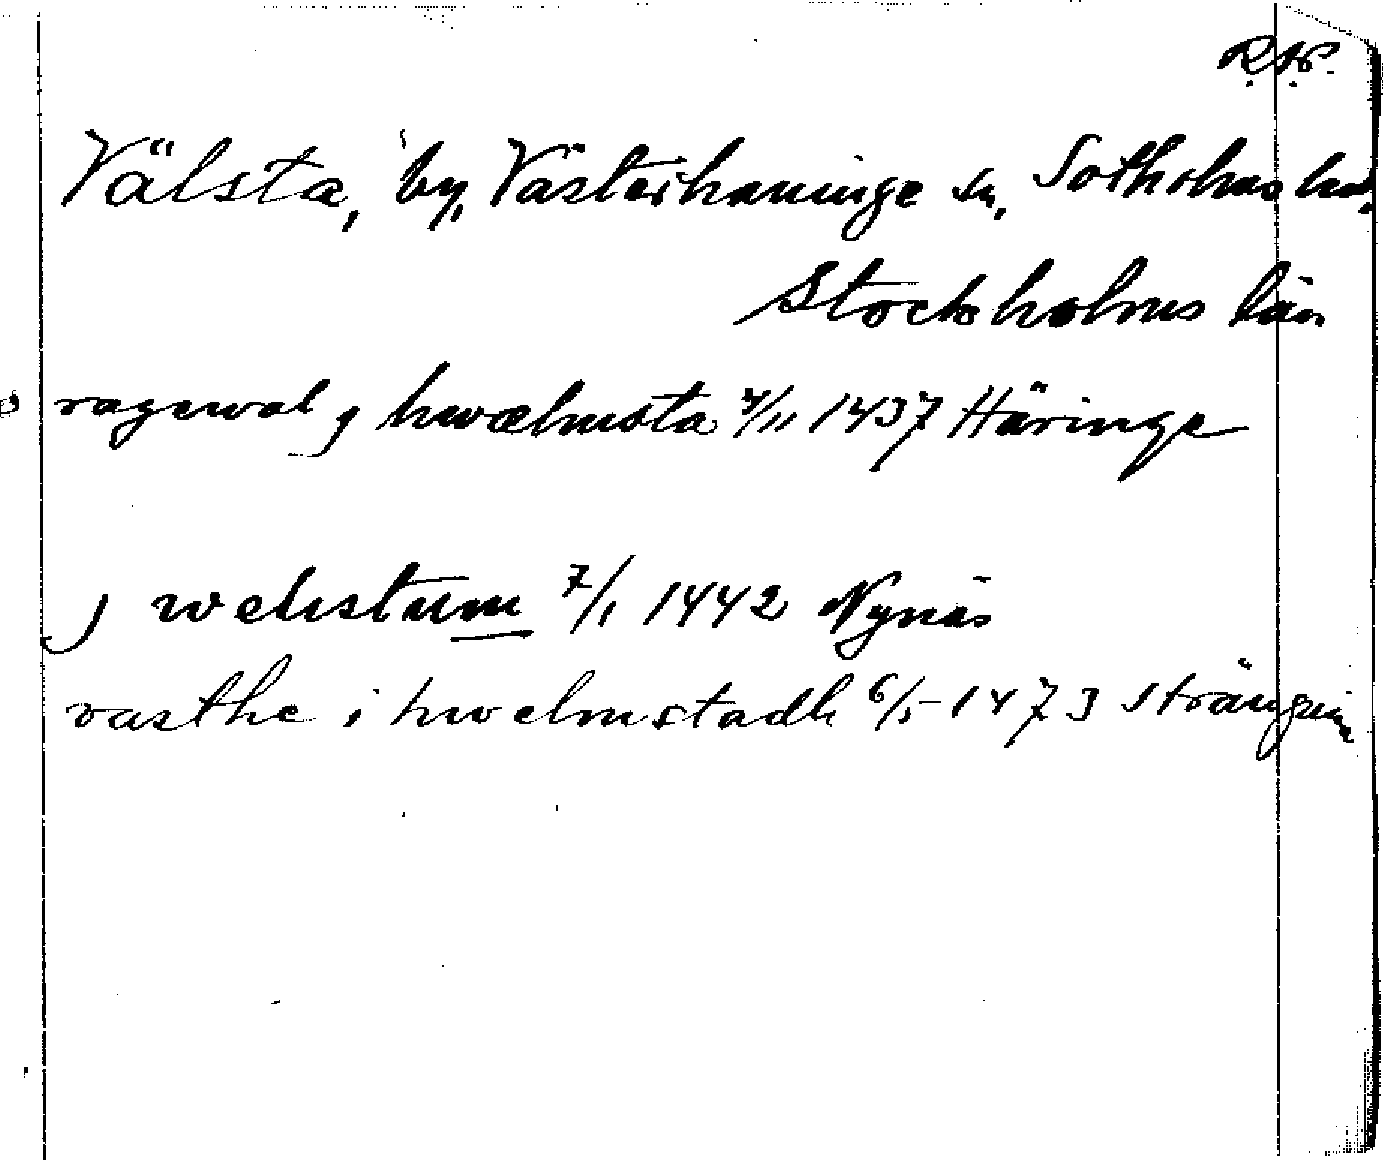 R.N.
Välsta, by, Västerhaninge sn, Sotholms hd.
Stockholms län
ragwal j hwælmsta 4/11 1437 Häringe
j welistum 7/1 1442 Nynäs
rasthe i hwelmstadh 6/5 1473 Strängnäs